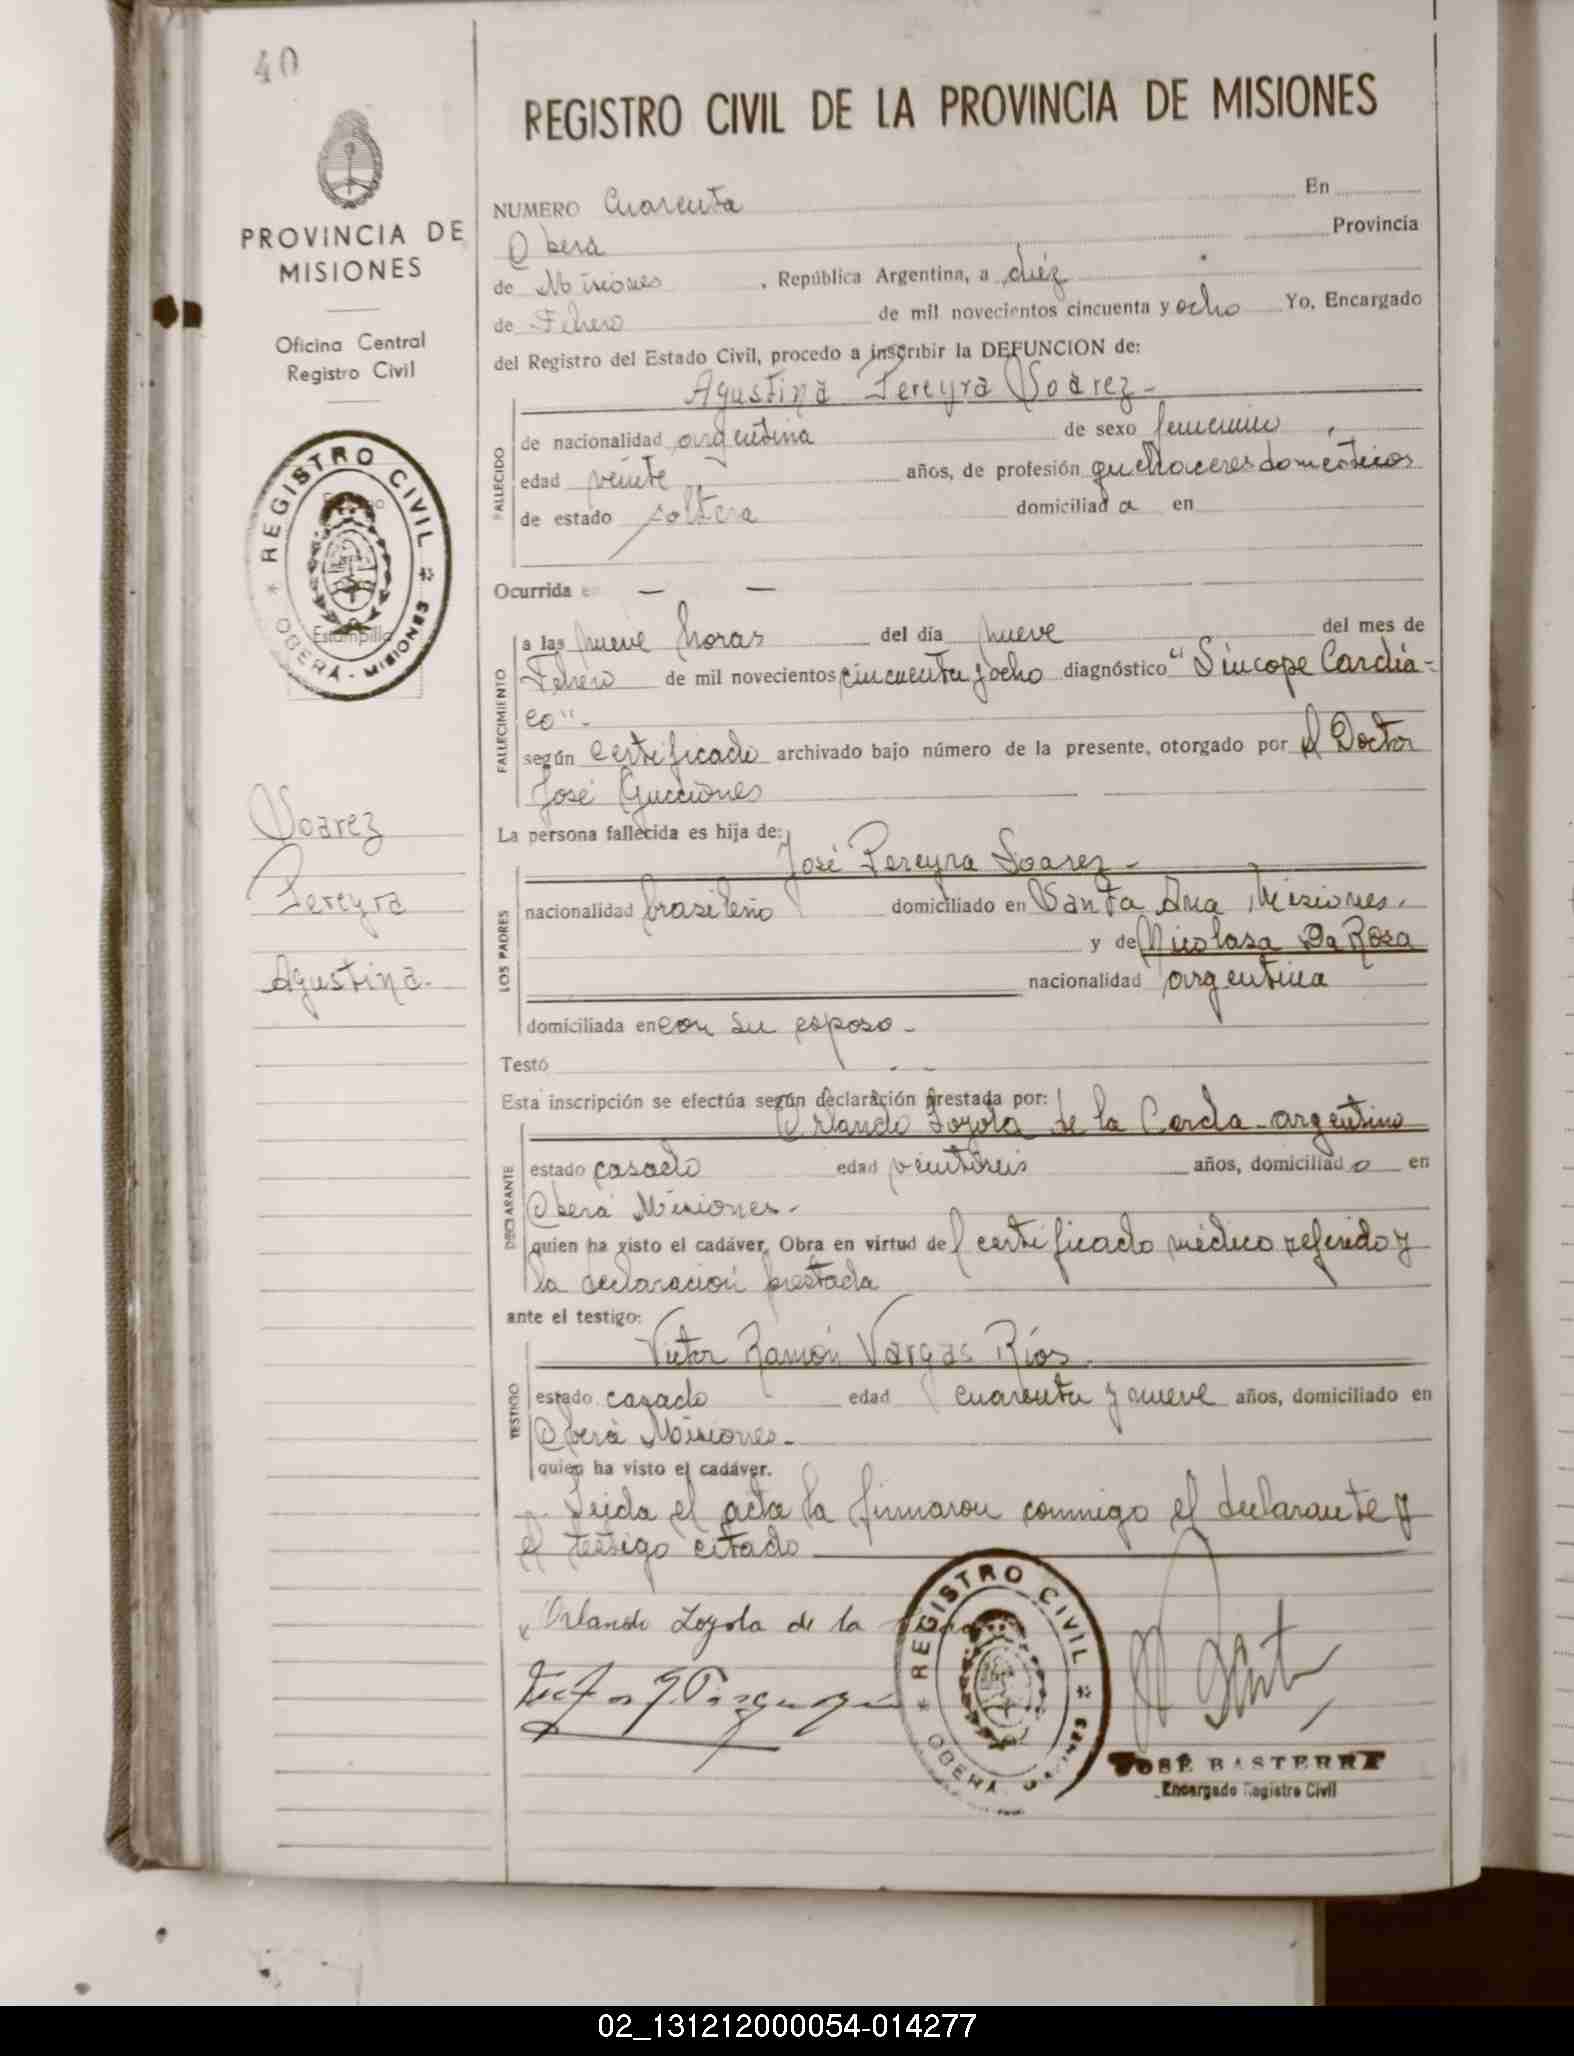 40
REGISTRO CIVIL DE LA PROVINCIA DE MISIONES
PROVINCIA DE
MISIONES
Oficina Central
Registro Civil
REGISTRO CIVIL
OBERÁ - MISIONES
Estampilla
Soarez
Pereyra
Agustina.
NUMERO Cuarenta En
Oberá Provincia
de Misiones , República Argentina, a diéz
de Febrero de mil novecientos cincuenta y ocho Yo, Encargado
del Registro del Estado Civil, procedo a inscribir la DEFUNCION de:
Agustina Pereyra Soarez -
FALLECIDO
de nacionalidad argentina de sexo femenino ,
edad veinte años, de profesión quehaceres domésticos
de estado soltera domiciliad a en
Ocurrida e — —
FALLECIMIENTO
a las nueve horas del día nueve del mes de
Febrero de mil novecientos cincuenta y ocho diagnóstico "Síncope Cardía-
co".-
según certificado archivado bajo número de la presente, otorgado por el Doctor
José Gucciones
La persona fallecida es hija de:
José Pereyra Soarez -
LOS PADRES
nacionalidad brasileño domiciliado en Santa Ana Misiones.
y de Nicolasa Da Rosa
nacionalidad argentina
domiciliada en con su esposo -
Testó - -
Esta inscripción se efectúa según declaración prestada por:
Orlando Loyola de la Cerda - argentino
DECLARANTE
estado casado edad veintiseis años, domiciliad o en
Oberá Misiones -
quien ha visto el cadáver. Obra en virtud del certificado médico referido y
la declaración prestada
ante el testigo:
Victor Ramón Vargas Ríos.
TESTIGO
estado casado edad cuarenta y nueve años, domiciliado en
Oberá Misiones -
quien ha visto el cadáver.
Leida el acta la firmaron conmigo el declarante y
el testigo citado
Orlando Loyola de la
REGISTRO CIVIL
OBERÁ
JOSÉ BASTERRA
Encargado Registro Civil
02_131212000054-014277